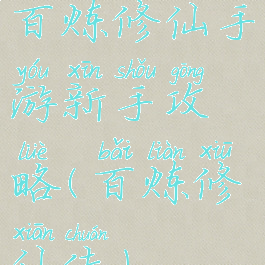 百炼修仙手
yóu xīn shǒu gōng
游新手攻
lüè bǎi liàn xiū
略(百炼修
xiān chuán
仙传)